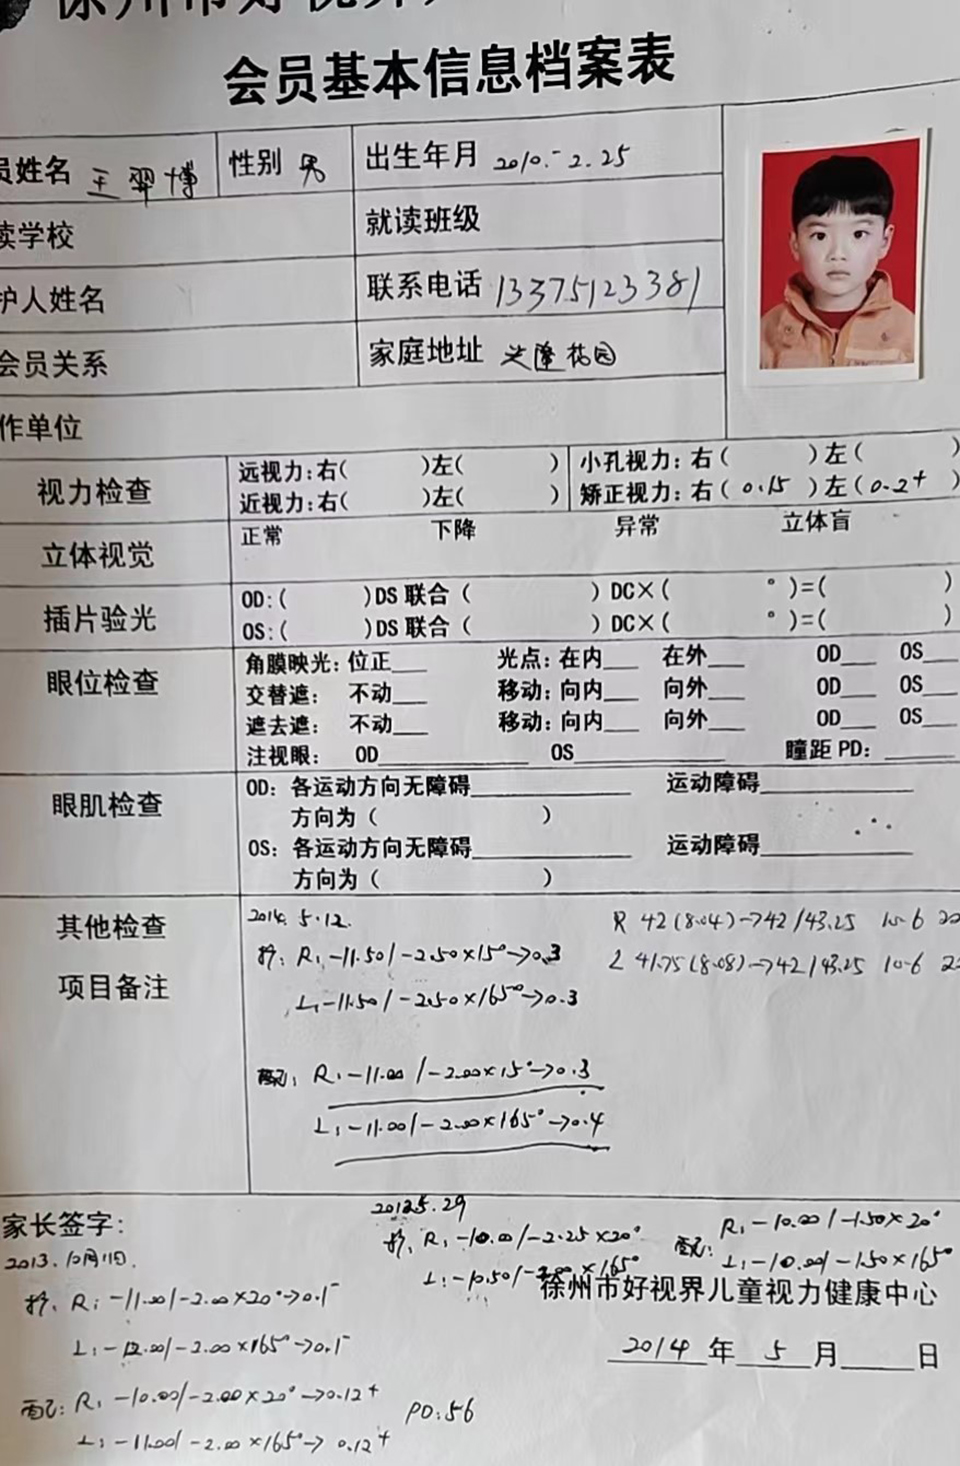 会员基本信息档案表
员姓名 王翠博 性别 男 出生年月 2010.-2.25
读学校 就读班级
护人姓名 联系电话 13375123381
会员关系 家庭地址 兴隆花园
作单位
视力检查 远视力:右( )左( ) 小孔视力:右( )左( )
近视力:右( )左( ) 矫正视力:右(0.15)左(0.2+)
立体视觉 正常 下降 异常 立体盲
插片验光 OD:( )DS联合( )DC×( °)=( )
OS:( )DS联合( )DC×( °)=( )
眼位检查 角膜映光:位正___ 光点:在内___ 在外___ OD___ OS___
交替遮: 不动___ 移动:向内___ 向外___ OD___ OS___
遮去遮: 不动___ 移动:向内___ 向外___ OD___ OS___
注视眼: OD___ OS___ 瞳距PD:___
眼肌检查 OD: 各运动方向无障碍___ 运动障碍___
方向为( )
OS: 各运动方向无障碍___ 运动障碍___
方向为( )
其他检查
项目备注
2014.5.12.
R 42(8.04)→42/43.25 10-6
验: R:-11.50/-2.50×15°→0.3
L 41.75(8.08)→42/43.25 10-6
L:-11.50/-2.50×165°→0.3
配: R:-11.00/-2.00×15°→0.3
L:-11.00/-2.00×165°→0.4
家长签字:
5.29
R:-10.00/-2.25×20°
配: R:-10.00/-1.50×20°
L:-10.00/-1.50×165°
徐州市好视界儿童视力健康中心
2013.10月11日.
验: R:-11.00/-2.00×20°→0.1-
L:-12.00/-2.00×165°→0.1-
2014年5月___日
配: R:-10.00/-2.00×20°→0.12+
PD:56
L:-11.00/-2.00×165°→0.12+